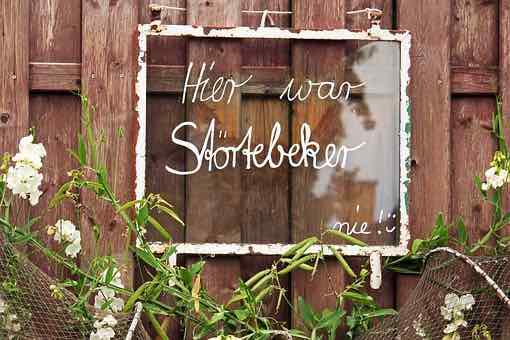 Hier war
Störtebeker
nie!!